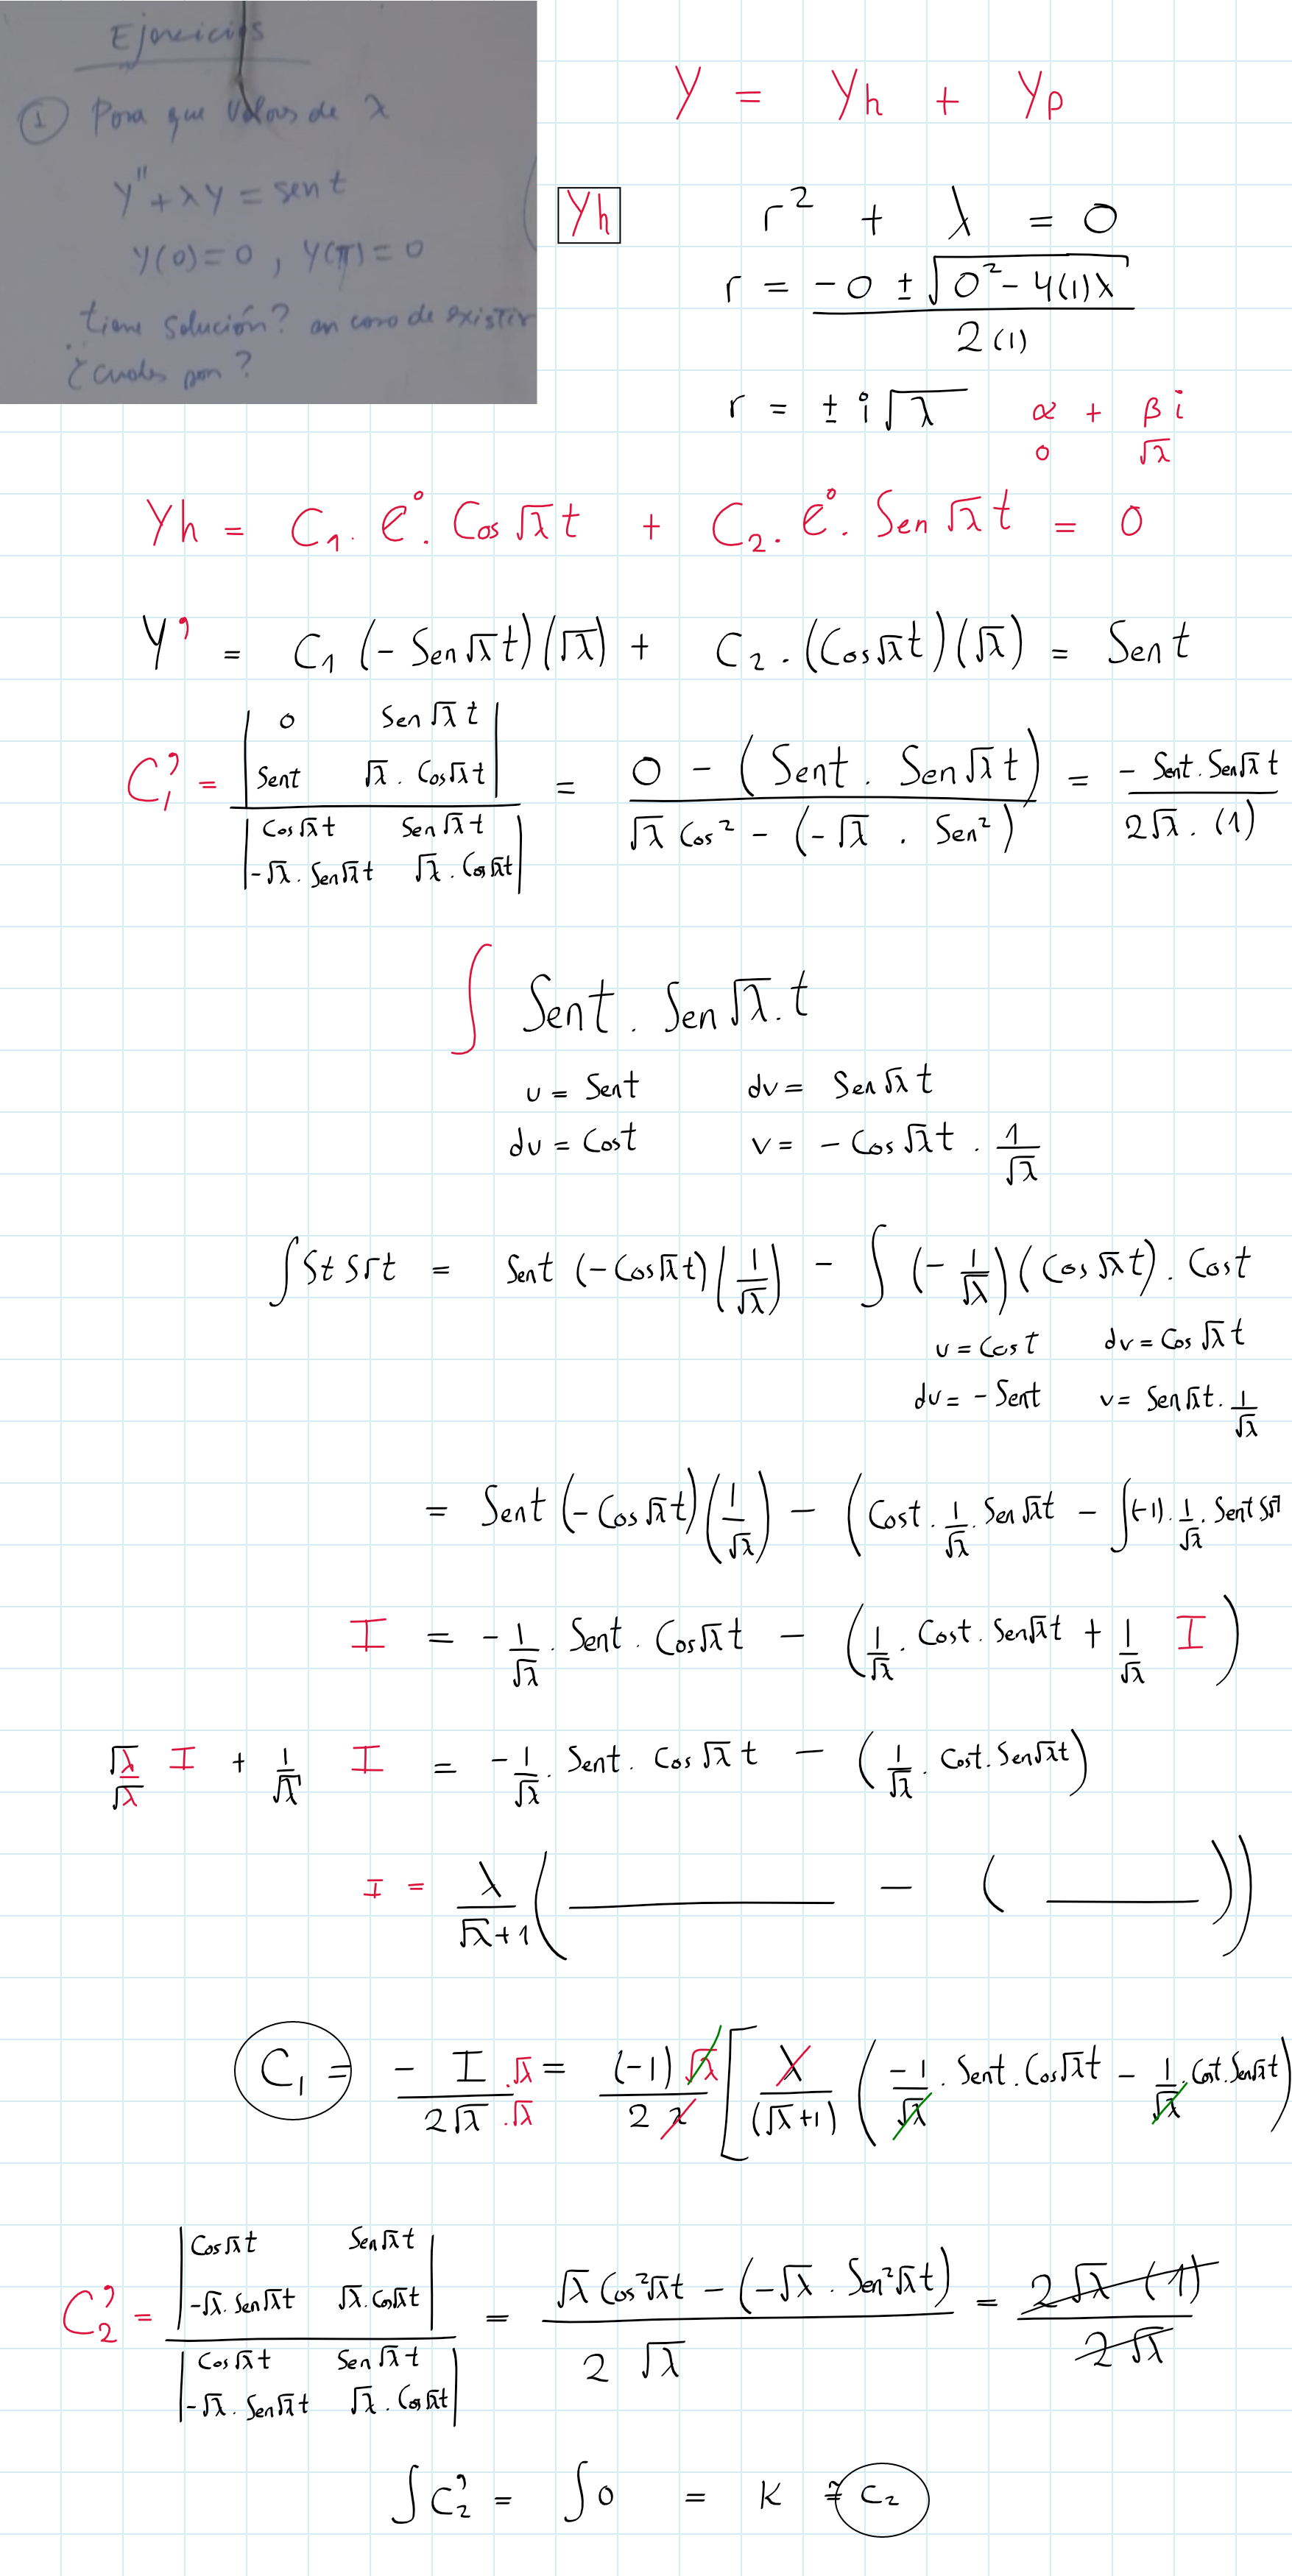 Ejercicios
① Para que valores de λ
y'' + λy = sen t
y(0) = 0 , y(π) = 0
tiene solución? en caso de existir
¿cuales son?
Y = Yh + Yp
Yh r² + λ = 0
r = -0 ± √(0² - 4(1)λ) / 2(1)
r = ± i√λ α + βi
0 √λ
Yh = C₁ . e⁰ . Cos √λ t + C₂ . e⁰ . Sen √λ t = 0
Y' = C₁ (- Sen √λ t)(√λ) + C₂ . (Cos √λ t)(√λ) = Sen t
C₁' = | 0 Sen √λ t ; Sen t √λ . Cos √λ t | / | Cos √λ t Sen √λ t ; -√λ . Sen √λ t √λ . Cos √λ t | = 0 - (Sen t . Sen √λ t) / √λ Cos² - (-√λ . Sen²) = - Sen t . Sen √λ t / 2√λ . (1)
∫ Sen t . Sen √λ . t
u = Sen t dv = Sen √λ t
du = Cos t v = - Cos √λ t . 1/√λ
∫ St S√t = Sen t (- Cos √λ t)(1/√λ) - ∫ (- 1/√λ)(Cos √λ t) . Cos t
u = Cos t dv = Cos √λ t
du = - Sen t v = Sen √λ t . 1/√λ
= Sen t (- Cos √λ t)(1/√λ) - (Cos t . 1/√λ . Sen √λ t - ∫(-1) . 1/√λ . Sen t S√λ
I = - 1/√λ . Sen t . Cos √λ t - (1/√λ . Cos t . Sen √λ t + 1/√λ I)
√λ/√λ I + 1/√λ I = - 1/√λ . Sen t . Cos √λ t - (1/√λ . Cos t . Sen √λ t)
I = λ/(√λ + 1) ( ______ - ( ______ ))
C₁ = - I . √λ / 2√λ . √λ = (-1) √λ / 2 λ [ λ / (√λ + 1) ( -1/√λ . Sen t . Cos √λ t - 1/√λ . Cos t . Sen √λ t)
C₂' = | Cos √λ t Sen √λ t ; -√λ . Sen √λ t √λ . Cos √λ t | / | Cos √λ t Sen √λ t ; -√λ . Sen √λ t √λ . Cos √λ t | = √λ Cos² √λ t - (-√λ . Sen² √λ t) / 2 √λ = 2√λ (1) / 2√λ
∫ C₂' = ∫ 0 = K = C₂